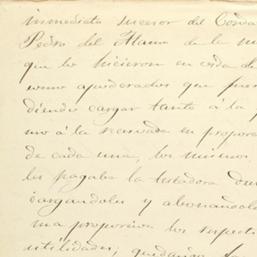 inmediato sucesor del Conda
Pedro del Alamo de la m
que los hicieron en vida de
como apoderados que fuer
diendo cargar tanto á la p
mo á la reservada en propor
de cada una, los mismos
les pagaba la testadora Du
cargandoles y abonandole
ma proporcion los respecti
utilidades; quedando